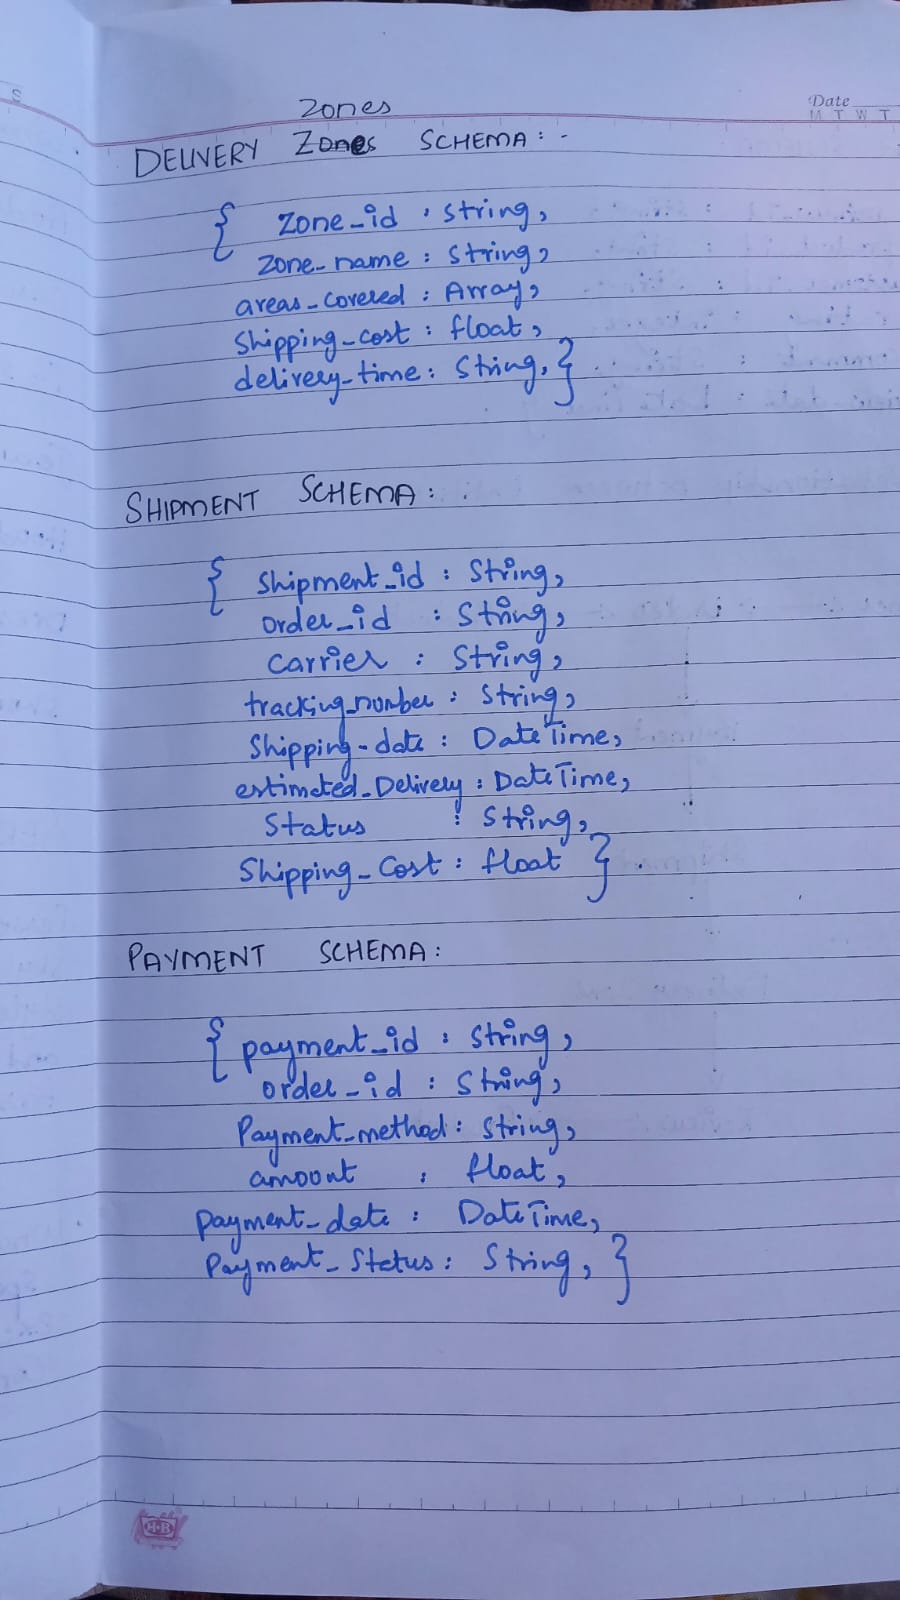 zones
Date
M T W T
DELIVERY Zones SCHEMA: -
{ zone_id : String,
zone_name : String,
areas_covered : Array,
Shipping_cost : float,
delivery_time : String, }
SHIPMENT SCHEMA :
{ Shipment_id : String,
order_id : String,
Carrier : String,
tracking_number : String,
Shipping_date : DateTime,
estimated_Delivery : DateTime,
Status : String,
Shipping_Cost : float }
PAYMENT SCHEMA :
{ payment_id : String,
order_id : String,
Payment_method : String,
amount : float,
payment_date : DateTime,
Payment_Status : String, }